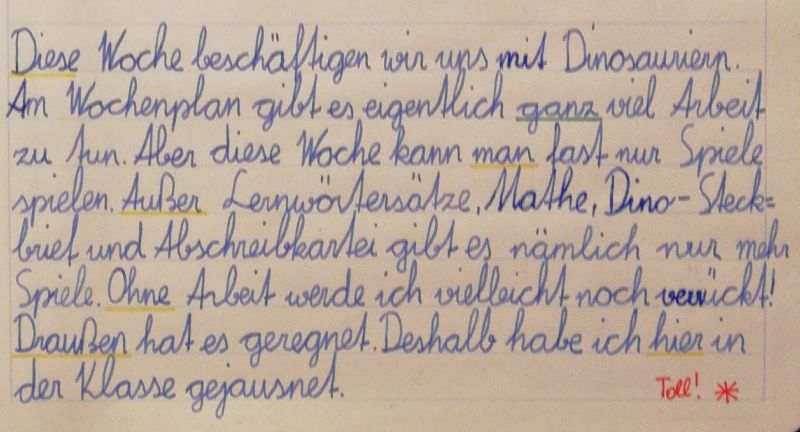 Diese Woche beschäftigen wir uns mit Dinosauriern.
Am Wochenplan gibt es eigentlich ganz viel Arbeit
zu tun. Aber diese Woche kann man fast nur Spiele
spielen. Außer Lernwörtersätze, Mathe, Dino-Steck=
brief und Abschreibkartei gibt es nämlich nur mehr
Spiele. Ohne Arbeit werde ich vielleicht noch verrückt!
Draußen hat es geregnet. Deshalb habe ich hier in
der Klasse gejausnet.
Toll! *